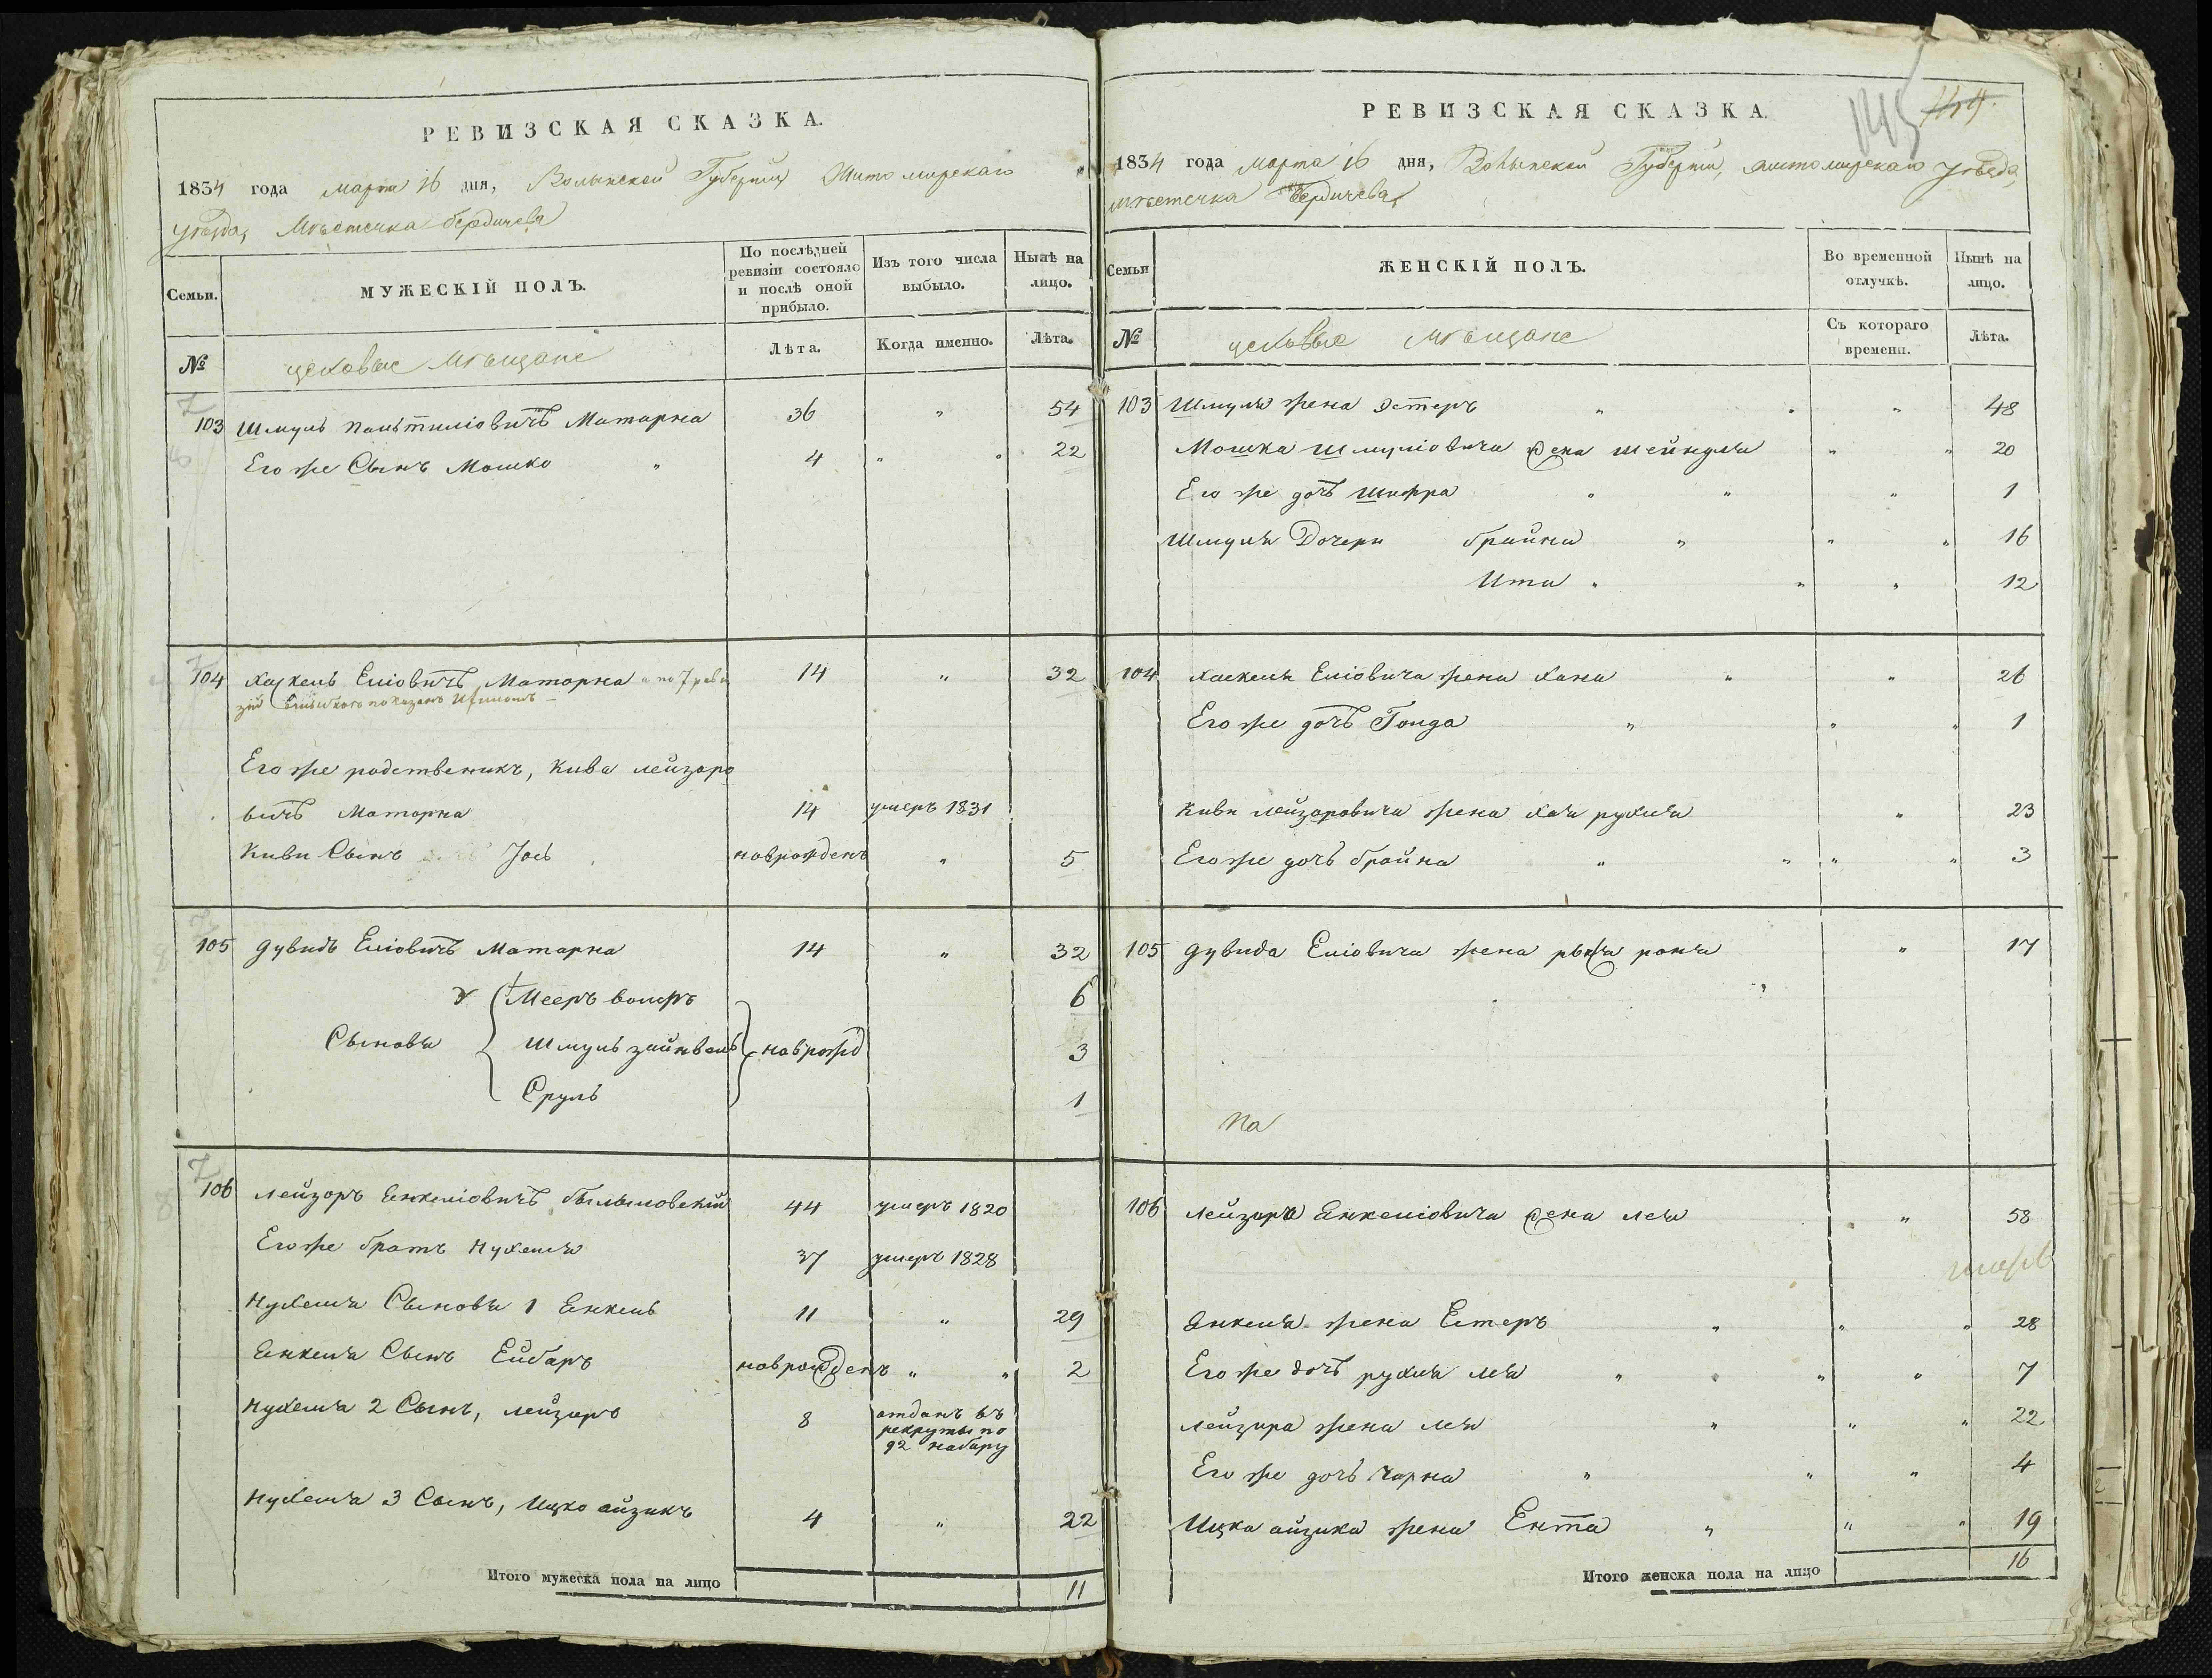 РЕВИЗСКАЯ СКАЗКА.
1834 года марта 16 дня, Волынской Губерніи Житомирскаго
уѣзда, Мѣстечка бердичева
Семьи.
МУЖЕСКІЙ ПОЛЪ.
По послѣдней ревизіи состояло и послѣ оной прибыло.
Изъ того числа выбыло.
Нынѣ на лицо.
№
цеховые мѣщане
Лѣта.
Когда именно.
Лѣта.
103 Шмуль Матарна 36 " 54
Его же Сынъ Мошко " 4 " " 22
104 Хаскель Еліовичъ Матарна а по 7 реви 14 " 32
зіи показанъ
Его же родственикъ, Кива лейзоро
вичъ Матарна 14 умеръ 1831
Киви Сынъ Іось новрожденъ " 5
105 дувидъ Еліовичъ Матарна 14 " 32
Мееръ вольфъ 6
Сыновья Шмуль зайнвель новрожд 3
Сруль 1
106 лейзоръ Енкеліовичъ 44 умеръ 1820
Его же братъ Нухемъ 37 умеръ 1828
Нухема Сыновья 1 Енкель 11 " 29
Енкеля Сынъ Ейбаръ новрожденъ " " 2
Нухема 2 Сынъ, лейзоръ 8 отданъ въ
рекруты по
92 набору
Нухема 3 Сынъ, Ицко айзикъ 4 " 22
Итого мужеска пола на лицо 11
РЕВИЗСКАЯ СКАЗКА.
145
1834 года марта 16 дня, Волынской Губерніи, житомирскаго уѣзда,
мѣстечка Бердичева
Семьи
ЖЕНСКІЙ ПОЛЪ.
Во временной отлучкѣ.
Нынѣ на лицо.
№
цеховые мѣщане
Съ котораго времени.
Лѣта.
103 Шмуля жена Эстеръ " " " 48
Мошка Шмуліовича жена шейндля " " 20
Его же дочь Шифра " " " 1
Шмуля Дочери брайна " " " 16
Ита " " " 12
104 Хаскеля Еліовича жена Хана " " 26
Его же дочь Голда " " " 1
Киви лейзоровича жена Хая рухля " 23
Его же дочь брайна " " " " 3
105 дувида Еліовича жена " 17
"
На
106 лейзора Енкеліовича жена лея " 58
Янкеля жена Естеръ " " " 28
Его же дочь рухля лея " " " " 7
лейзора жена лея " " " 22
Его же дочь Чарна " " " 4
Ицка айзика жена Ента " " " 19
Итого женска пола на лицо 16